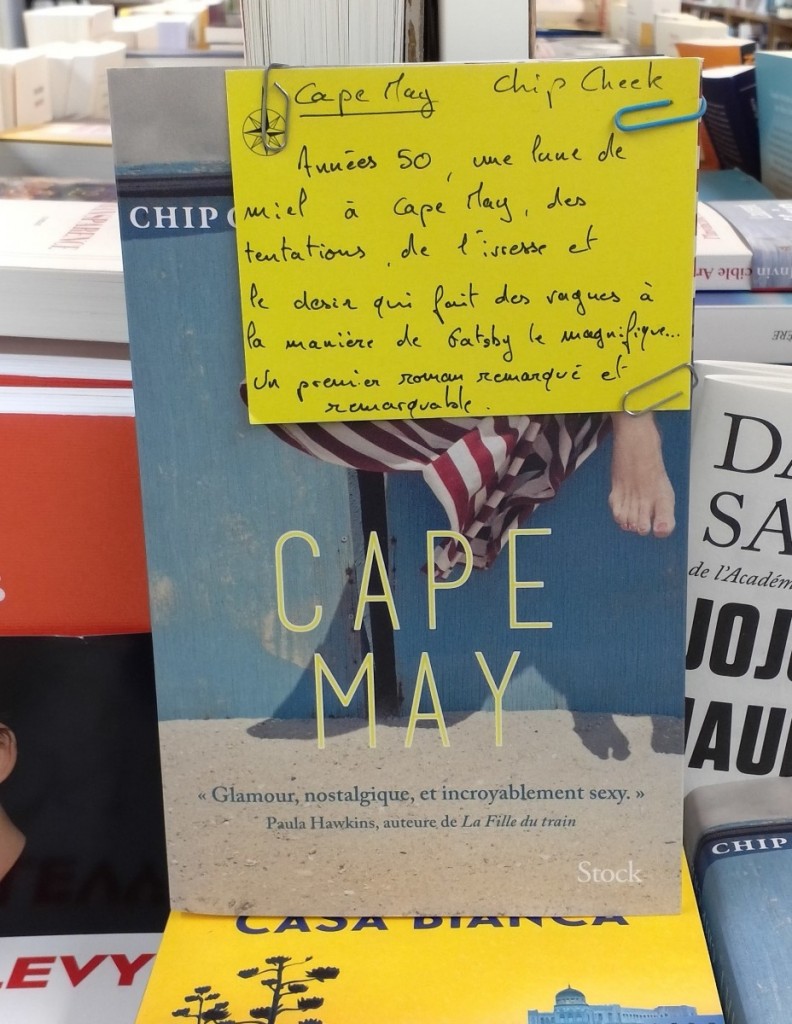 Cape May Chip Cheek
Années 50, une lune de
miel à Cape May, des
tentations, de l'ivresse et
le desir qui fait des vagues à
la manière de Gatsby le magnifique...
Un premier roman remarqué et
remarquable.
CHIP
CAPE
MAY
« Glamour, nostalgique, et incroyablement sexy. »
Paula Hawkins, auteure de La Fille du train
Stock
CASA BIANCA
LEVY
DA
SA
de l'Académ
JOJO
CHIP